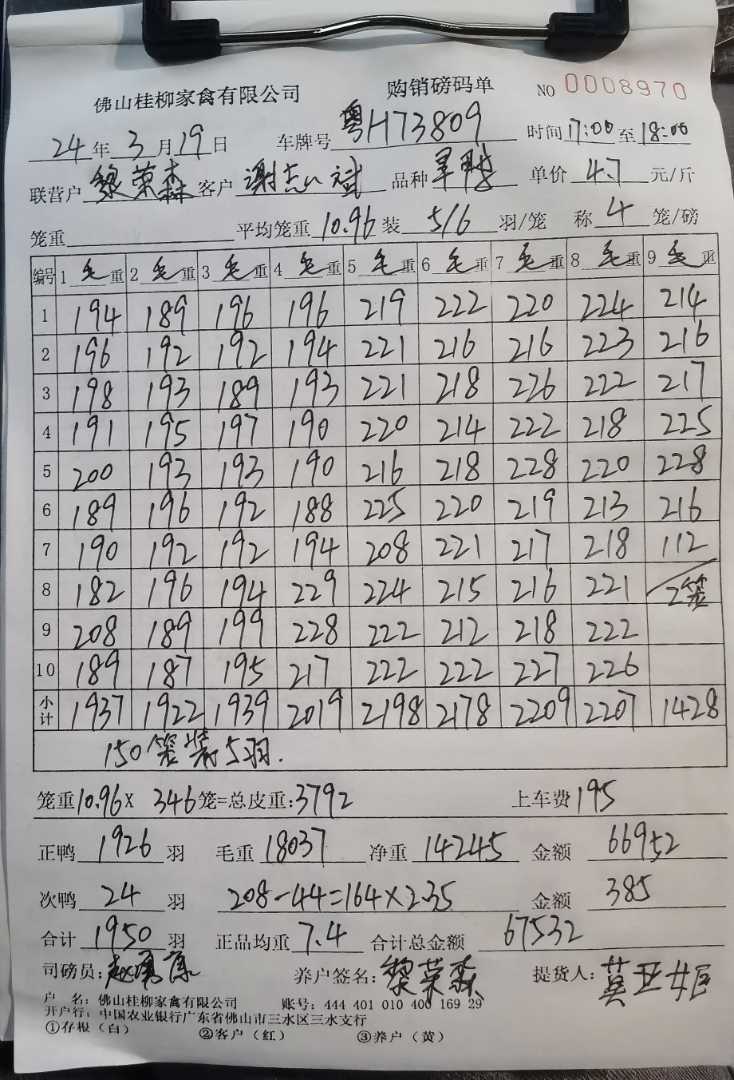 佛山桂柳家禽有限公司 购销磅码单 NO 0008970
24年3月19日 车牌号 粤H73809 时间17:00至18:00
联营户 黎荣森 客户 谢志斌 品种 单价 4.7 元/斤
笼重 平均笼重 10.96 装 5/6 羽/笼 称 4 笼/磅
编号 1 毛重 2 毛重 3 毛重 4 毛重 5 毛重 6 毛重 7 毛重 8 毛重 9 毛重
1 194 189 196 196 219 222 220 224 214
2 196 192 192 194 221 216 216 223 216
3 198 193 189 193 221 218 226 222 217
4 191 195 197 190 220 214 222 218 225
5 200 193 193 190 216 218 228 220 228
6 189 196 192 188 225 220 219 213 216
7 190 192 192 194 208 221 217 218 112
8 182 196 194 229 224 215 216 221 2笼
9 208 189 199 228 222 212 218 222
10 189 187 195 217 222 222 227 226
小计 1937 1922 1939 2019 2198 2178 2209 2207 1428
150笼装5羽.
笼重10.96X 346笼=总皮重:3792 上车费195
正鸭 1926 羽 毛重 18037 净重 14245 金额 66952
次鸭 24 羽 208-44=164×2.35 金额 385
合计 1950 羽 正品均重 7.4 合计总金额 67532
司磅员: 养户签名: 黎荣森 提货人:
户 名: 佛山桂柳家禽有限公司 账号: 444 401 010 400 169 29
开户行: 中国农业银行广东省佛山市三水区三水支行
①存根(白) ②客户(红) ③养户(黄)